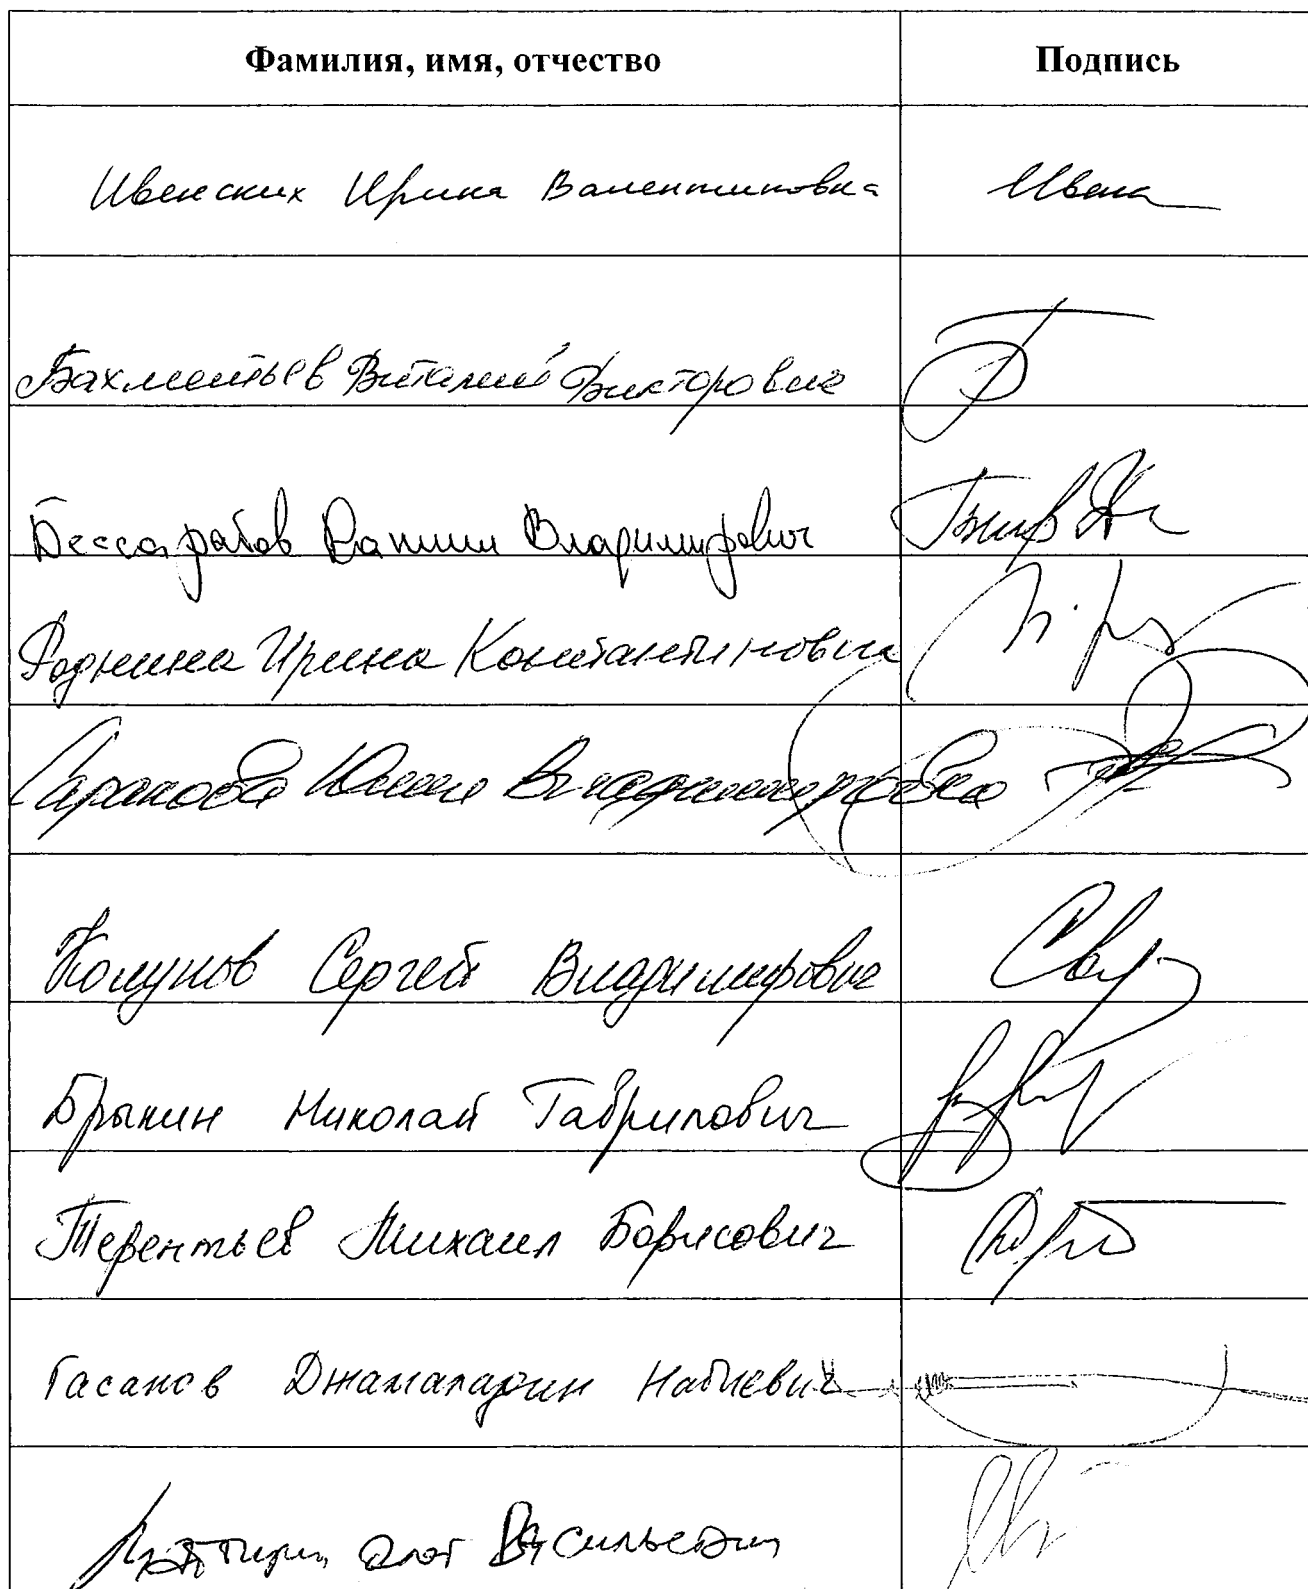 Фамилия, имя, отчество Подпись
Ивенских Ирина Валентиновна Ивен
Бахметьев Виталий Викторович
Бессарабов Даниил Владимирович
Роднина Ирина Константиновна
Сарапова Юлия Владимировна
Колунов Сергей Владимирович
Брыкин Николай Гаврилович
Терентьев Михаил Борисович
Гасанов Джамаладин Набиевич
Олег Васильевич